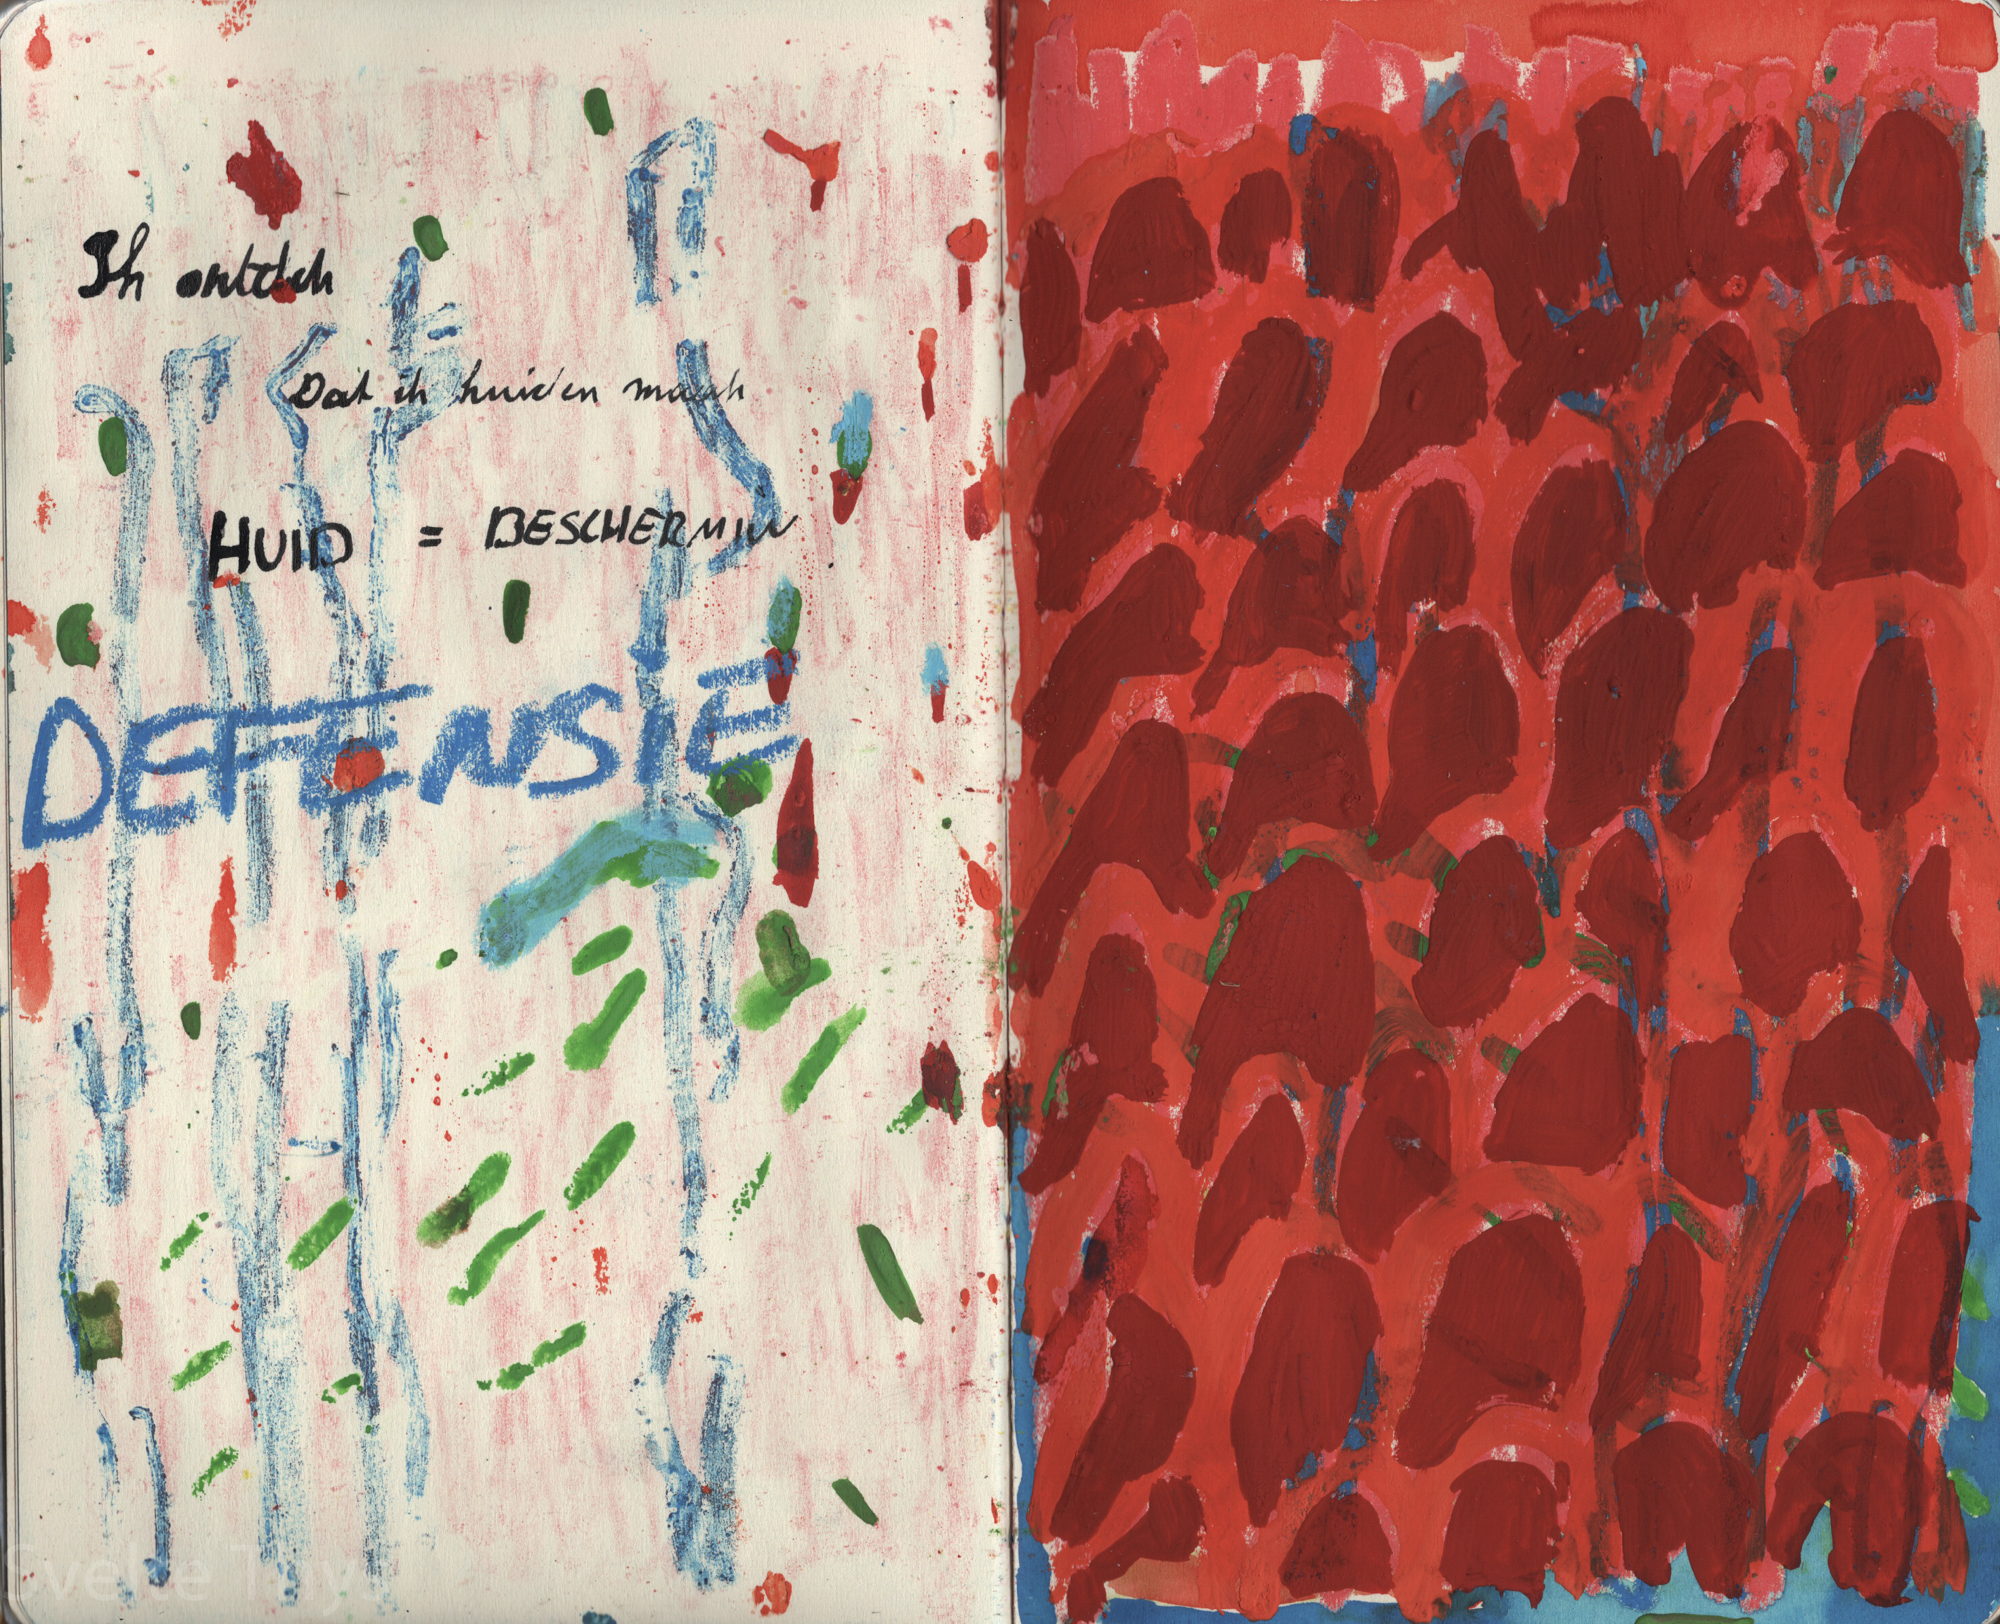 Ik ontdek
Dat ik huiden maak
HUID = BESCHERMIN
DEFENSIE
Svelte